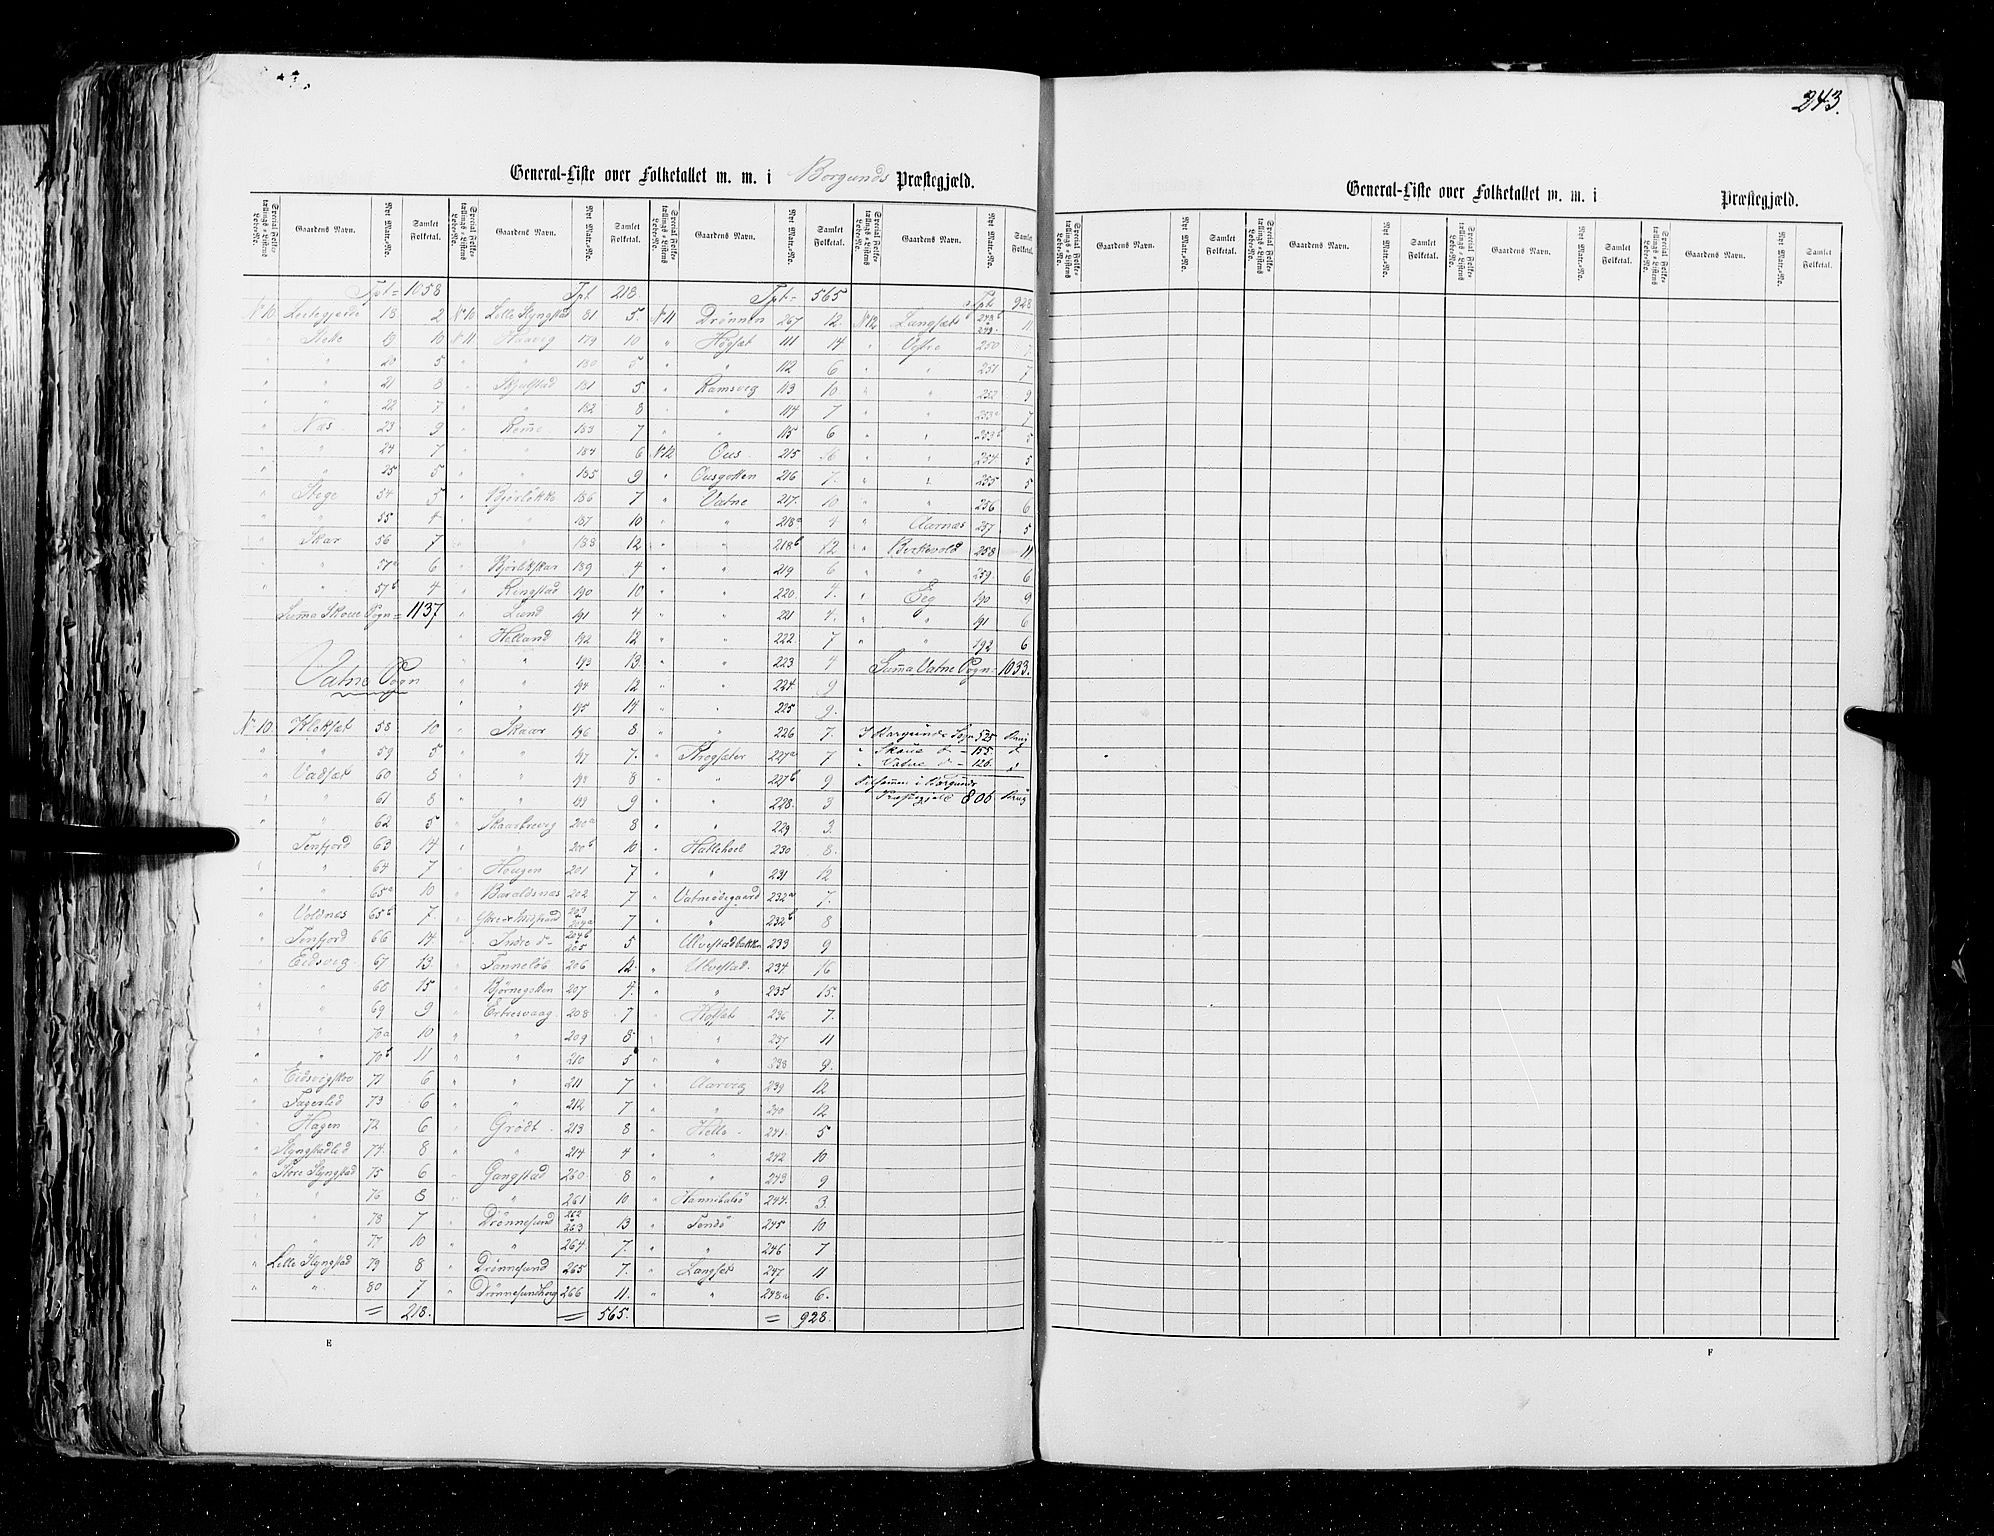 243.
General-Liste over Folketallet m. m. i Borgunds Præstegjæld.
Special Folketællings-Listens Løbe-No. Gaardens Navn. Nyt Matr.-No. Samlet Folketal. Special Folketællings-Listens Løbe-No. Gaardens Navn. Nyt Matr.-No. Samlet Folketal. Special Folketællings-Listens Løbe-No. Gaardens Navn. Nyt Matr.-No. Samlet Folketal. Special Folketællings-Listens Løbe-No. Gaardens Navn. Nyt Matr.-No. Samlet Folketal.
Tpt = 1058
No 10 18 2
" Stette 19 10
" " 20 5
" " 21 8
" " 22 7
" Næs 23 9
" " 24 7
" " 25 5
" Stege 54 5
" " 55 4
" Skar 56 7
" " 57a 6
" " 57b 4
Suma Skoue Sogn = 1137
Vatne Sogn
No 10 Kloksæt 58 10
" " 59 5
" Vadsæt 60 8
" " 61 8
" " 62 5
" Tenfjord 63 14
" " 64 7
" " 65a 10
" Voldnes 65b 7.
" Tenfjord 66 14
" Eidsvig 67 13
" " 68 15
" " 69 9
" " 70a 10
" " 70b 11
" Eidsvigskov 71 6
" Fagerlid 73 6
" Hagen 72 6
" Slyngstadlid 74 8
" Store Slyngstad 75 6
" " 76 8
" " 78 7
" " 77 10
" Lille Slyngstad 79 8
" " 80 7
= 218.
Tpt 218.
No 10 Lille Slyngstad 81 5.
No 11 Haavig 179 10
" " 180 5
" Skjelstad 181 5
" " 182 8
" Rem̄e 183 7
" " 184 6
" " 185 9
" Bjørløkke 186 7
" " 187 10
" " 188 12
" Bjørlikskar 189 4
" Ringstad 190 10
" Lund 191 4
" Helland 192 12
" " 193 13
" " 194 12
" " 195 14
" Skaar 196 8
" " 197 7.
" " 198 8
" " 199 9
" Skaarbrevig 200a 8
" " 200b 10
" Hougen 201 7
" Baraldsnæs 202 7
" 203 204a 7
" Indre d- 204b 205 5
" Tanneløb 206 12
" Bjørnegotten 207 4.
" Erbresvaag 208 7
" " 209 8
" " 210 5
" " 211 7
" " 212 7
" Grødt 213 8
" " 214 4
" Gangstad 260 8
" " 261 10
" Drønnesund 262 263 13
" " 264 7.
" Drønnesund 265 7.
" Drønnesundhoug 266 11.
= 565.
Tpt = 565
No 11 Drønnen 267 12.
" Høgset 111 14
" " 112 6
" Ramsvig 113 10
" " 114 7
" " 115 6
No 12 Ous 215 16
" Ousgotten 216 7.
" Vatne 217. 10
" " 218a 4
" " 218b 12
" " 219 6
" " 220 4.
" " 221 4.
" " 222 7
" " 223 4
" " 224 9
" " 225 9.
" " 226 7.
" Krogsæter 227a 7
" " 227b 9
" " 228. 3
" " 229 3.
" Hattehoel 230 8.
" " 231 12
" Vatneødegaard 232a 7.
" " 232b 8
" Ulvestadbakken 233 9
" Ulvestad 234 16
" " 235 15.
" Kolsæt 236 7.
" " 237 11
" " 238 9.
" Aarvig 239 12
" " 240 12
" Helle 241 5
" " 242 10
" " 243 9
" Hannibalsø 244 3.
" Tendø 245 10
" " 246 7
" Langsæt 247 11
" " 248a 6.
= 928.
Tpt 928
No 12 Langsæt 248b 249 11
" Vestre 250 7
" " 251 7
" " 252 9
" " 253a 7
" " 253b 5
" " 254 5
" " 255 5
" " 256 6
" Aarnæs 257 5
" Birkevold 258 11
" " 259. 6
" Eeg 190 9
" " 191 6
" " 192 6
Suma Vatne Sogn = 1033.
I Borgunds Sogn 525 Brug
" Skoue d- 155. d
" Vatne d- 126. d
Tilsammen i Borgunds
Præstegjeld 806 Brug
E
General-Liste over Folketallet m. m. i Præstegjæld.
Special Folketællings-Listens Løbe-No. Gaardens Navn. Nyt Matr.-No. Samlet Folketal. Special Folketællings-Listens Løbe-No. Gaardens Navn. Nyt Matr.-No. Samlet Folketal. Special Folketællings-Listens Løbe-No. Gaardens Navn. Nyt Matr.-No. Samlet Folketal. Special Folketællings-Listens Løbe-No. Gaardens Navn. Nyt Matr.-No. Samlet Folketal.
F